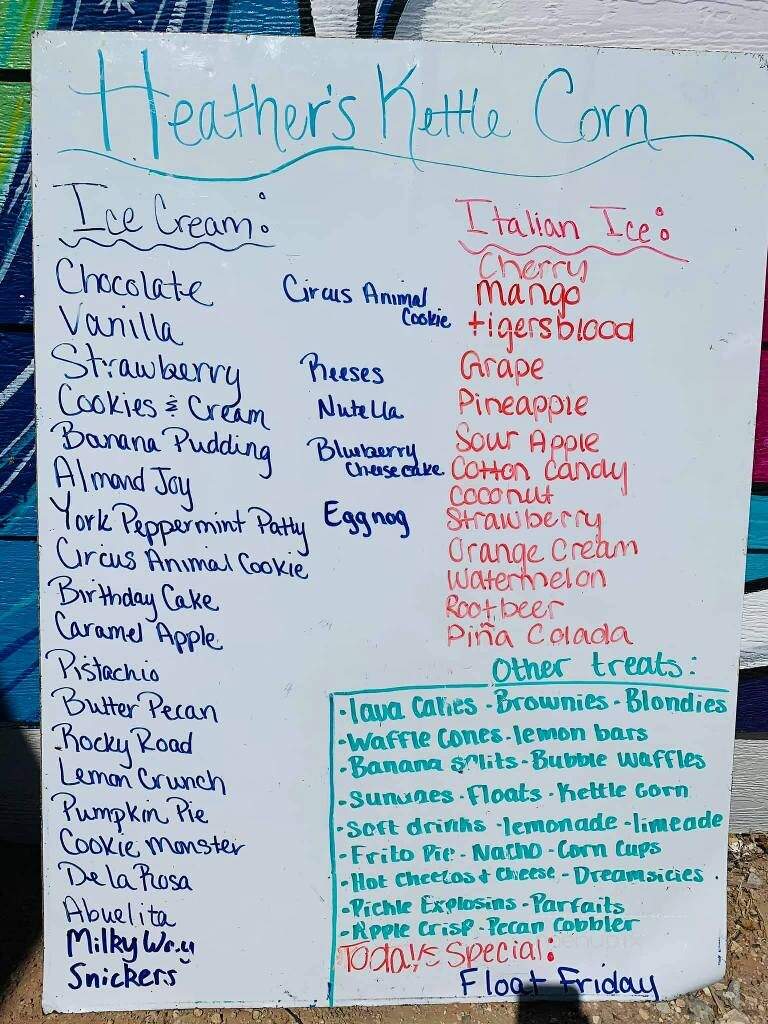 Heather's Kettle Corn
Ice Cream:
Chocolate
Vanilla
Strawberry
Cookies & Cream
Banana Pudding
Almond Joy
York Peppermint Patty
Circus Animal Cookie
Birthday Cake
Caramel Apple
Pistachio
Butter Pecan
Rocky Road
Lemon Crunch
Pumpkin Pie
Cookie Monster
De La Rosa
Abuelita
Milky Way
Snickers
Circus Animal
Cookie
Reeses
Nutella
Blueberry
Cheesecake
Eggnog
Italian Ice:
Cherry
Mango
tigersblood
Grape
Pineapple
Sour Apple
Cotton Candy
Coconut
Strawberry
Orange Cream
Watermelon
Rootbeer
Piña Colada
Other treats:
·lava Cakes ·Brownies ·Blondies
·Waffle Cones ·lemon bars
·Banana splits ·Bubble waffles
·sundaes ·Floats ·Kettle Corn
·Soft drinks ·lemonade ·limeade
·Frito Pie ·Nacho ·Corn Cups
·Hot Cheetos + Cheese ·Dreamsicles
·Pickle Explosins ·Parfaits
·Apple Crisp ·Pecan Cobbler
Today's Special:
Float Friday